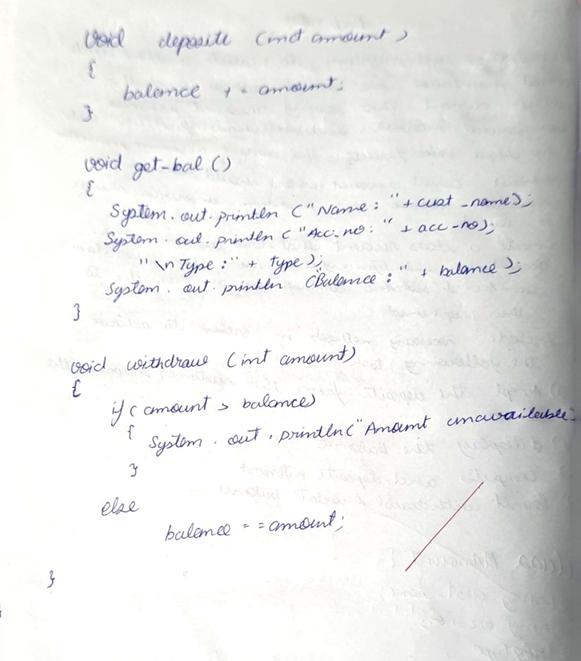 void deposite (int amount)
{
balance += amount;
}
void get-bal ()
{
System.out.println ("Name: "+cust_name);
System.out.println ("Acc-no: " + acc-no);
"\n Type:" + type);
System.out.println ("Balance:" + balance);
}
void withdraw (int amount)
{
if (amount > balance)
{
System.out.println("Amount unavailable:
}
else
balance -= =amount;
}